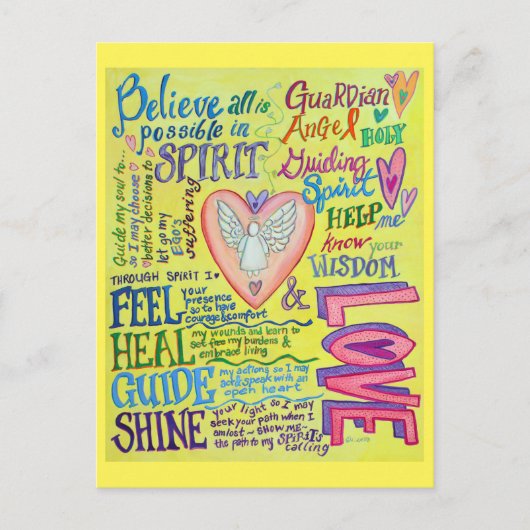 Believe all is
possible in
SPIRIT
GUARDIAN
ANGEL HOLY
Guiding
Spirit
HELP me
know your
WISDOM
Guide my soul to...
so I may choose
better decisions to
let go my
EGO'S
suffering
THROUGH SPIRIT I
FEEL your
presence
so to have
courage & comfort
HEAL my wounds and learn to
set free my burdens &
embrace living
GUIDE my actions so I may
act & speak with an
open heart
SHINE your light so I may
seek your path when I
am lost ~ SHOW ME ~
the path to my SPIRIT'S
calling
&
LOVE